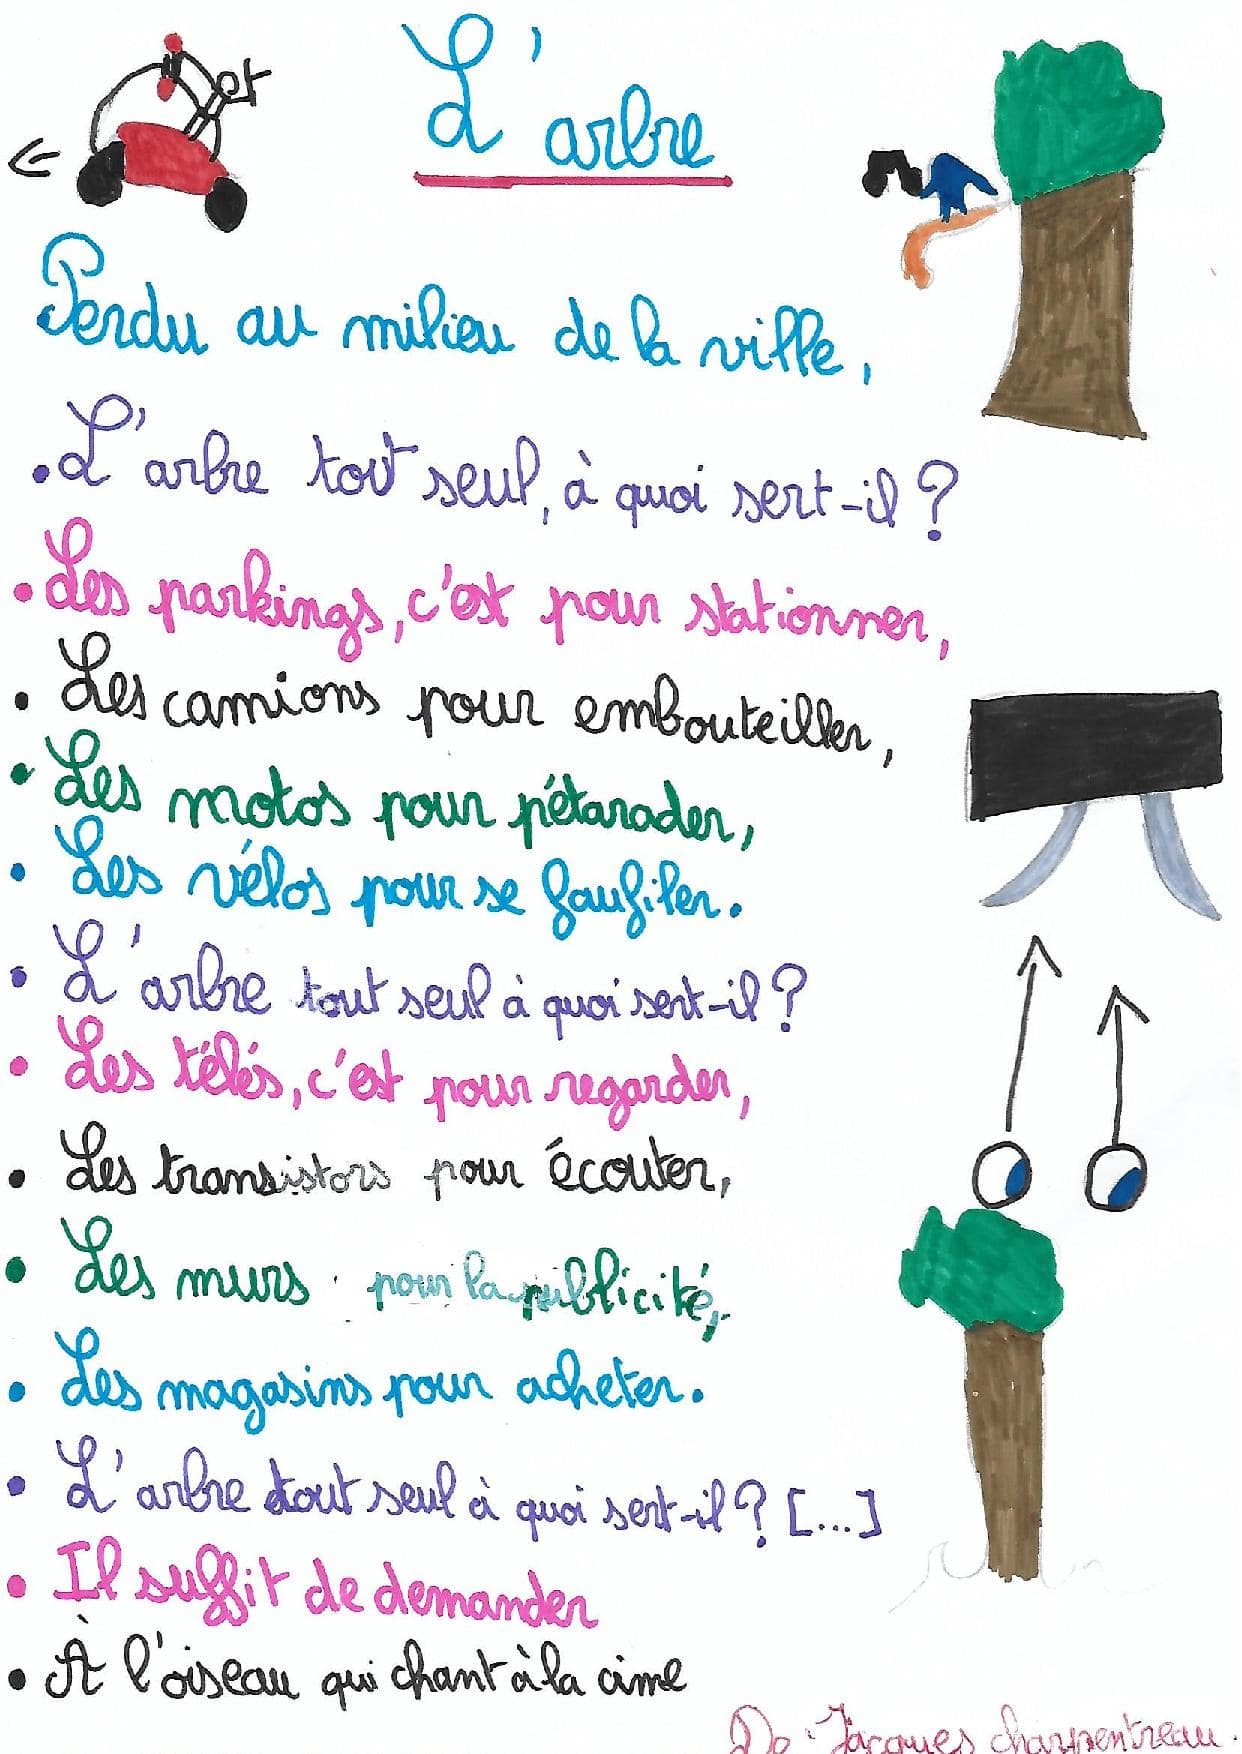 L'arbre
Perdu au milieu de la ville,
• L'arbre tout seul, à quoi sert-il ?
• Les parkings, c'est pour stationner,
• Les camions pour embouteiller,
• Les motos pour pétarader,
• Les vélos pour se faufiler.
• L'arbre tout seul à quoi sert-il ?
• Les télés, c'est pour regarder,
• Les transistors pour écouter,
• Les murs pour la publicité,
• Les magasins pour acheter.
• L'arbre tout seul à quoi sert-il ? [...]
• Il suffit de demander
• À l'oiseau qui chant à la cime
De Jacques charpentreau.